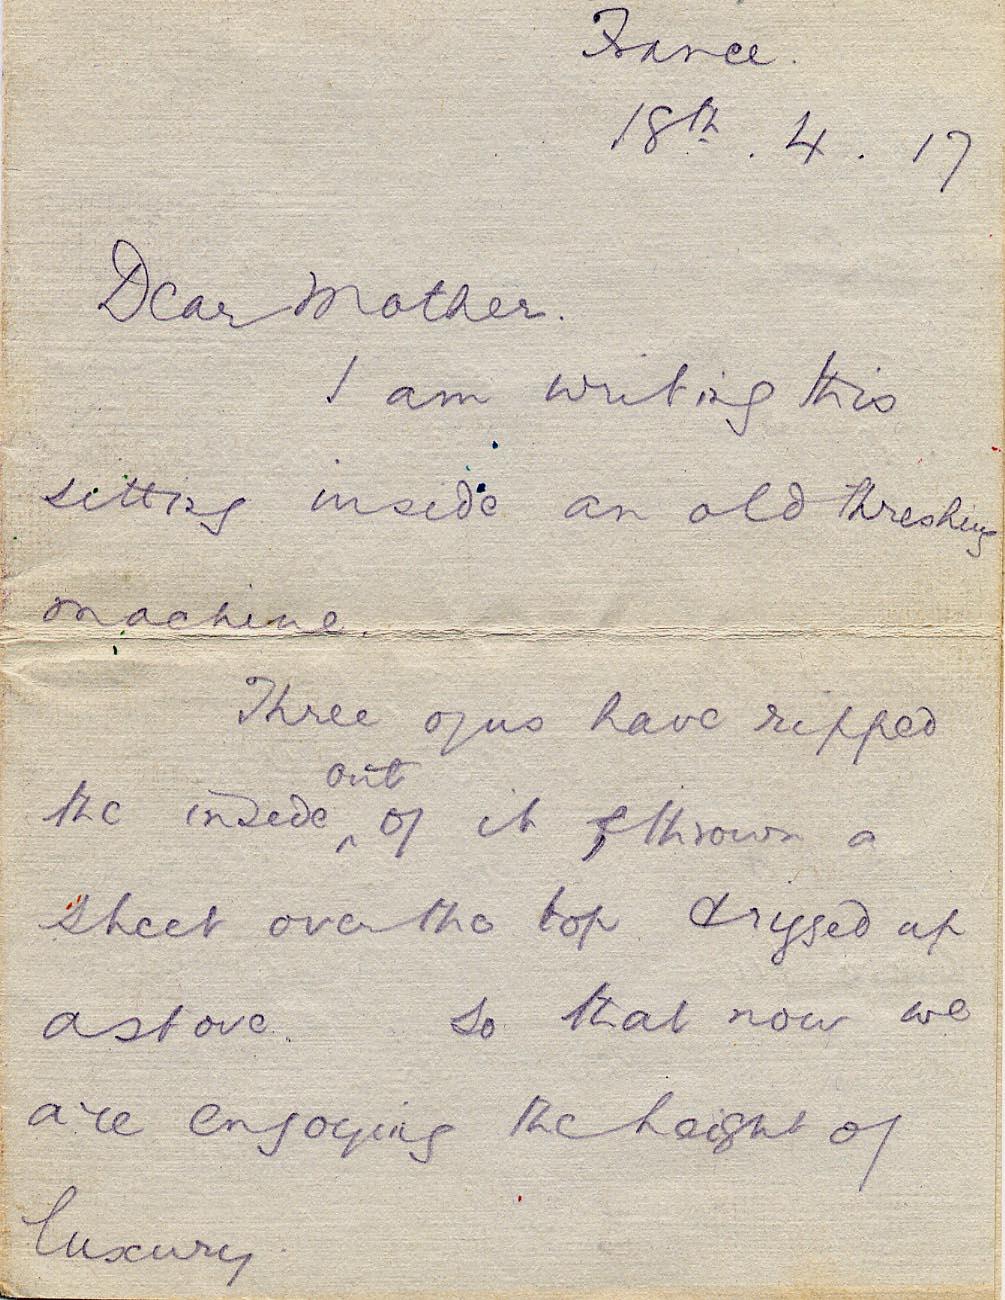 France.
18th . 4 . 17
Dear Mother.
I am writing this
sitting inside an old threshing
machine.
Three of us have ripped
out
the inside ^ of it & thrown a
sheet over the top & rigged up
a stove. So that now we
are enjoying the height of
luxury.